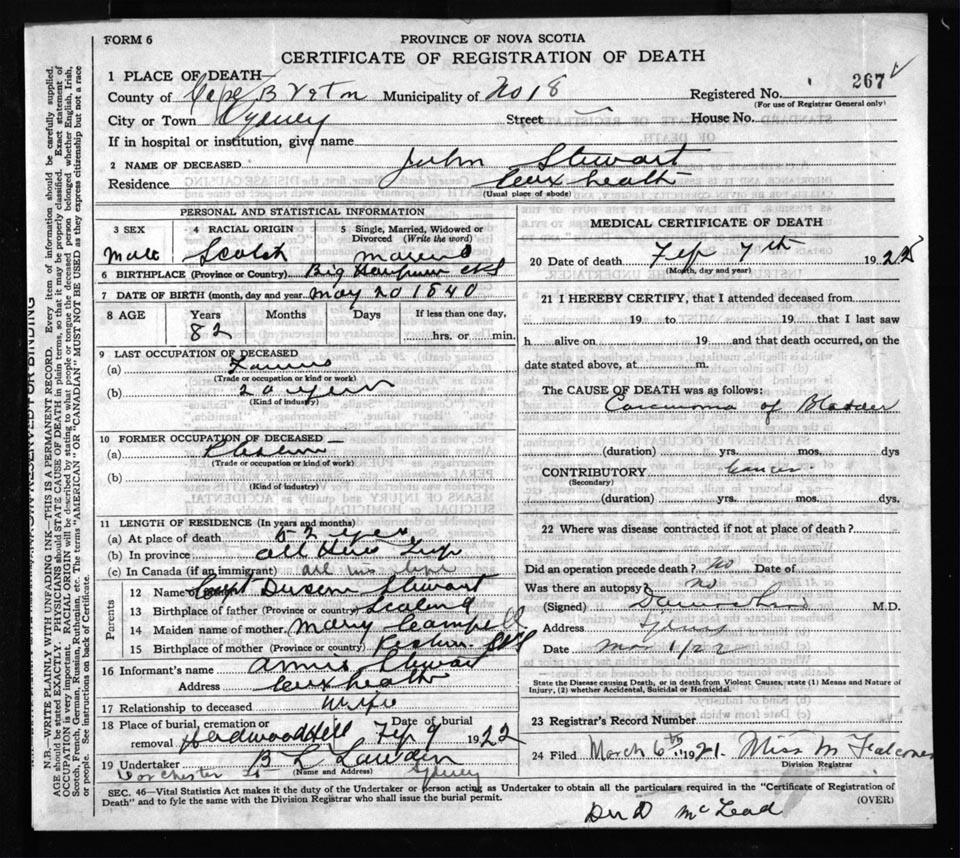 FORM 6
PROVINCE OF NOVA SCOTIA
CERTIFICATE OF REGISTRATION OF DEATH
1 PLACE OF DEATH—
County of Cape Breton Municipality of No 18 Registered No. 267
(For use of Registrar General only)
City or Town Sydney Street House No.
If in hospital or institution, give name
2 NAME OF DECEASED John Stewart
Residence Coxheath
(Usual place of abode)
PERSONAL AND STATISTICAL INFORMATION
3 SEX 4 RACIAL ORIGIN 5 Single, Married, Widowed or Divorced (Write the word)
Male Scotch
6 BIRTHPLACE (Province or Country) Big
7 DATE OF BIRTH (month, day and year May 20 1840
8 AGE Years Months Days If less than one day,
82 hrs. or min.
9 LAST OCCUPATION OF DECEASED
(a)
(Trade or occupation or kind or work)
(b) 20 years
(Kind of industry)
10 FORMER OCCUPATION OF DECEASED—
(a)
(Trade or occupation or kind of work)
(b)
(Kind of industry)
11 LENGTH OF RESIDENCE (In years and months)
(a) At place of death 52 yrs
(b) In province all his life
(c) In Canada (if an immigrant) all his life
Parents
12 Name Stewart
13 Birthplace of father (Province or country)
14 Maiden name of mother Mary Campbell
15 Birthplace of mother (Province or country)
16 Informant's name Annie Stewart
Address Coxheath
17 Relationship to deceased Wife
18 Place of burial, cremation or removal Hardwood Hill Date of burial Feb 9 1922
19 Undertaker B L Sydney
(Name and Address)
MEDICAL CERTIFICATE OF DEATH
20 Date of death Feb 7th 1922
(Month, day and year)
21 I HEREBY CERTIFY, that I attended deceased from
19 to 19 that I last saw
h alive on 19 and that death occurred, on the
date stated above, at m.
The CAUSE OF DEATH was as follows:
Carcinoma of Bladder
(duration) yrs. mos. dys
CONTRIBUTORY Cancer.
(Secondary)
(duration) yrs. mos. dys.
22 Where was disease contracted if not at place of death?
Did an operation precede death? No Date of
Was there an autopsy? No
(Signed) M.D.
Address Sydney
Date Mar 1/22
State the Disease causing Death, or in death from Violent Causes, state (1) Means and Nature of
Injury, (2) whether Accidental, Suicidal or Homicidal.
23 Registrar's Record Number
24 Filed March 6th 1921. Miss M Falconer
Division Registrar
SEC. 46—Vital Statistics Act makes it the duty of the Undertaker or person acting as Undertaker to obtain all the particulars required in the "Certificate of Registration of
Death" and to fyle the same with the Division Registrar who shall issue the burial permit.
(OVER)
D McLead
RESERVED FOR BINDING
N.B.—WRITE PLAINLY WITH UNFADING INK—THIS IS A PERMANENT RECORD. Every item of information should be carefully supplied.
AGE should be stated EXACTLY. PHYSICIANS should STATE CAUSE OF DEATH in plain terms, so that it may be properly classified. Exact statement of
OCCUPATION is very important. RACIAL ORIGIN will be described by stating to what people or tongue the deceased person belonged, whether English, Irish,
Scotch, French, German, Russian, Ruthenian, etc. The terms "AMERICAN" OR "CANADIAN" MUST NOT BE USED as they express citizenship but not a race
or people. See instructions on back of Certificate.